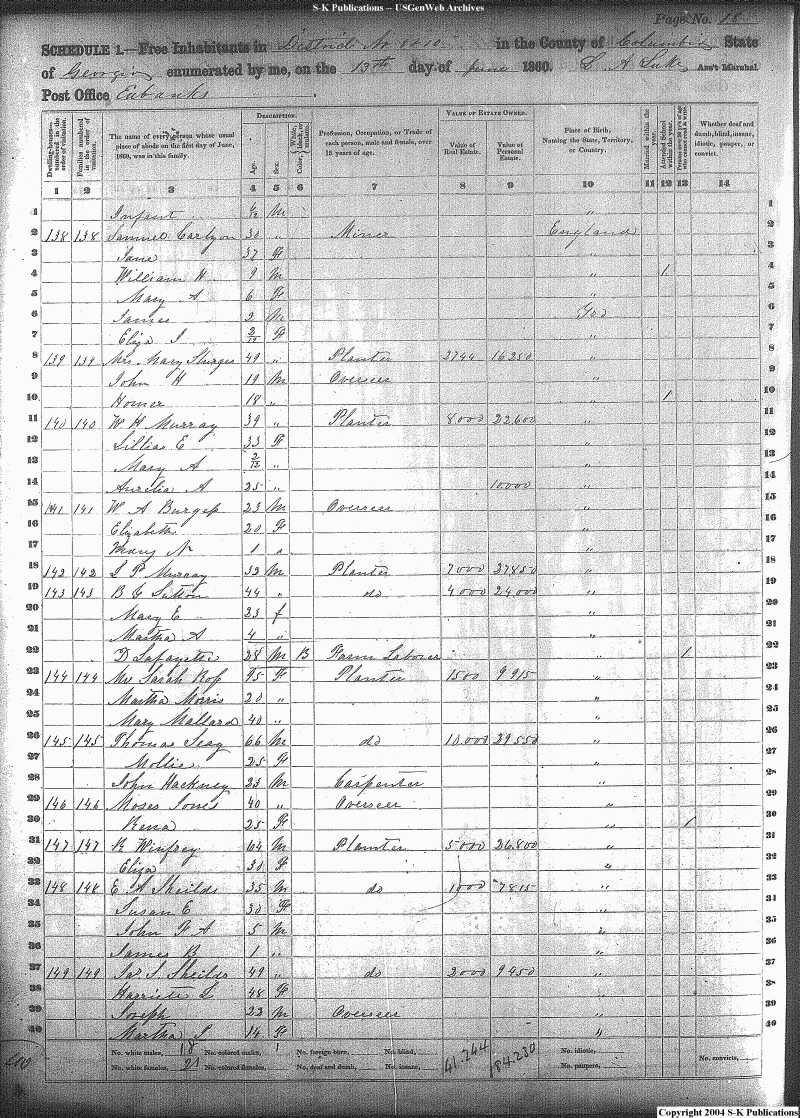 S-K Publications – USGenWeb Archives
Page No. 18
SCHEDULE 1.—Free Inhabitants in District No. in the County of Columbia State
of Georgia enumerated by me, on the 13th day of June 1860. L. A. Luke Ass't Marshal.
Post Office Eubanks
DESCRIPTION. VALUE OF ESTATE OWNED.
Dwelling-houses—numbered in the order of visitation. Families numbered in the order of visitation. The name of every person whose usual place of abode on the first day of June, 1860, was in this family. Age. Sex. Color, White, black, or mulatto. Profession, Occupation, or Trade of each person, male and female, over 15 years of age. Value of Real Estate. Value of Personal Estate. Place of Birth, Naming the State, Territory, or Country. Married within the year. Attended School within the year. Whether deaf and dumb, blind, insane, idiotic, pauper, or convict.
1 2 3 4 5 6 7 8 9 10 11 12 13 14
1 Infant M " 1
2 138 138 Samuel Carlyon 30 " Miner England 2
3 Jane 37 F " 3
4 William H 9 M " 1 4
5 Mary A 6 F " 5
6 James 2 M Geo 6
7 Eliza J 2/12 F " 7
8 139 139 Mrs Mary Sturges 49 " Planter 2744 16250 " 8
9 John H 19 M Overseer " 9
10 Homer 18 " " 1 10
11 140 140 W H Murray 39 " Planter 8000 22600 " 11
12 Lillias E 33 F " 12
13 Mary A 2/12 " " 13
14 Aurelia A 25 " 10000 " 14
15 141 141 W A Burgess 23 M Overseer " 15
16 Elizabeth 20 F " 16
17 Mary N 1 " " 17
18 142 142 S P Murray 32 M Planter 7000 27850 " 18
19 143 143 B C Sutton 44 " do 4000 24000 " 19
20 Mary E 23 f " 20
21 Martha A 4 " " 21
22 D Lafayette 28 M B Farm Laborer " 1 22
23 144 144 Mrs Sarah Ross 95 F Planter 1500 9915 " 23
24 Martha Morris 20 " " 24
25 Mary Mallard 40 " " 25
26 145 145 Thomas Seay 66 M do 10.000 29550 " 26
27 Mollie 25 F " 27
28 John Hackney 23 M Carpenter " 28
29 146 146 Moses Jones 40 " Overseer " 29
30 Rena 25 F " 1 30
31 147 147 B Winfrey 64 M Planter 5000 26.800 " 31
32 Eliza 30 F " 32
33 148 148 E A Sheilds 35 M do 1000 7815 " 33
34 Susan E 30 F " 31
35 John F A 5 M " 35
36 James B 1 " " 36
37 149 149 Jas S Sheilds 49 " do 2000 9450 " 37
38 Harriete L 48 F " 38
39 Joseph 22 M Overseer " 39
40 Martha J 14 F " 40
No. white males, 18 No. colored males, 1 No. foreign born, No. blind, 41.244 184.230 No. idiotic, No. convicts,
No. white females, 21 No. colored females, No. deaf and dumb, No. insane, No. paupers,
Copyright 2004 S-K Publications